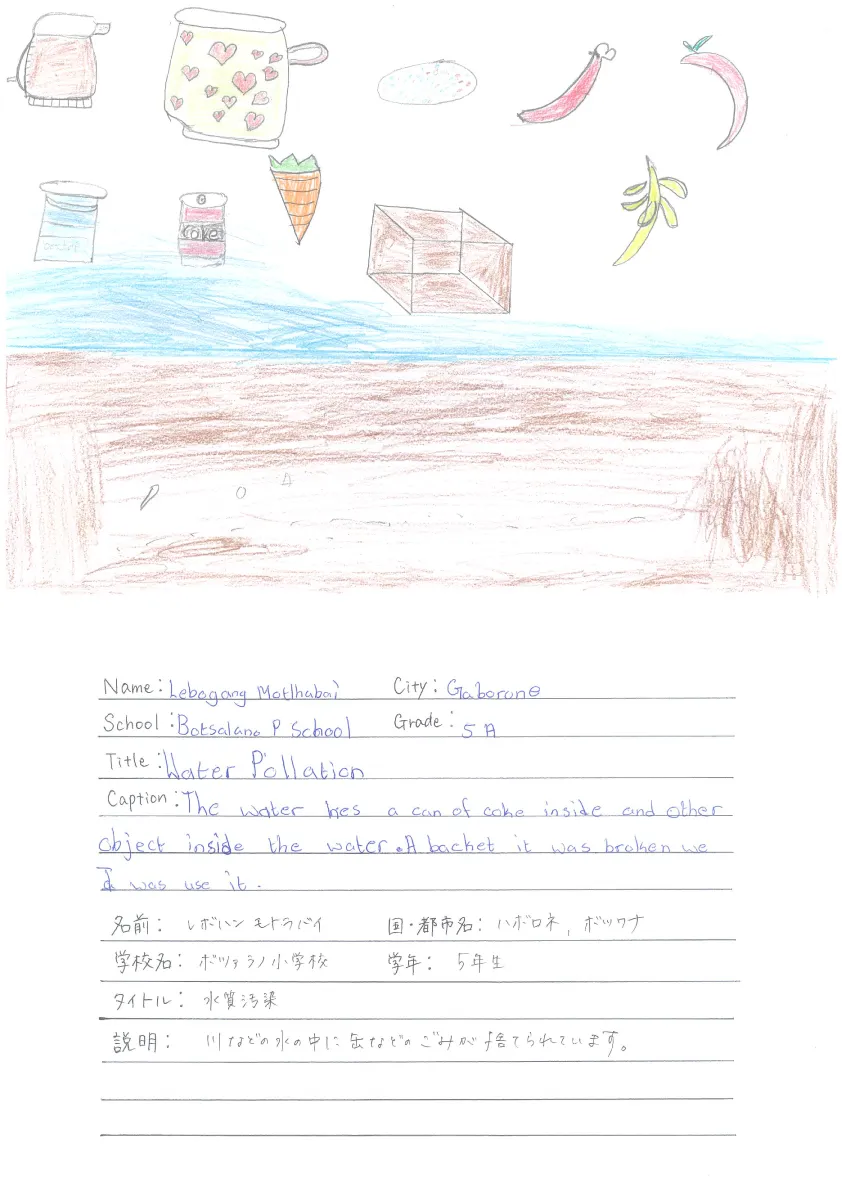 coke
Name: Lebogang Motlhabai City: Gaborone
School: Botsalano P School Grade: 5 A
Title: Water Pollation
Caption: The water hes a can of coke inside and other
object inside the water. A backet it was broken we
I was use it.
名前: レボハン モトラバイ 国・都市名: ハボロネ, ボツワナ
学校名: ボツァラノ小学校 学年: 5年生
タイトル: 水質汚染
説明: 川などの水の中に缶などのごみが捨てられています。